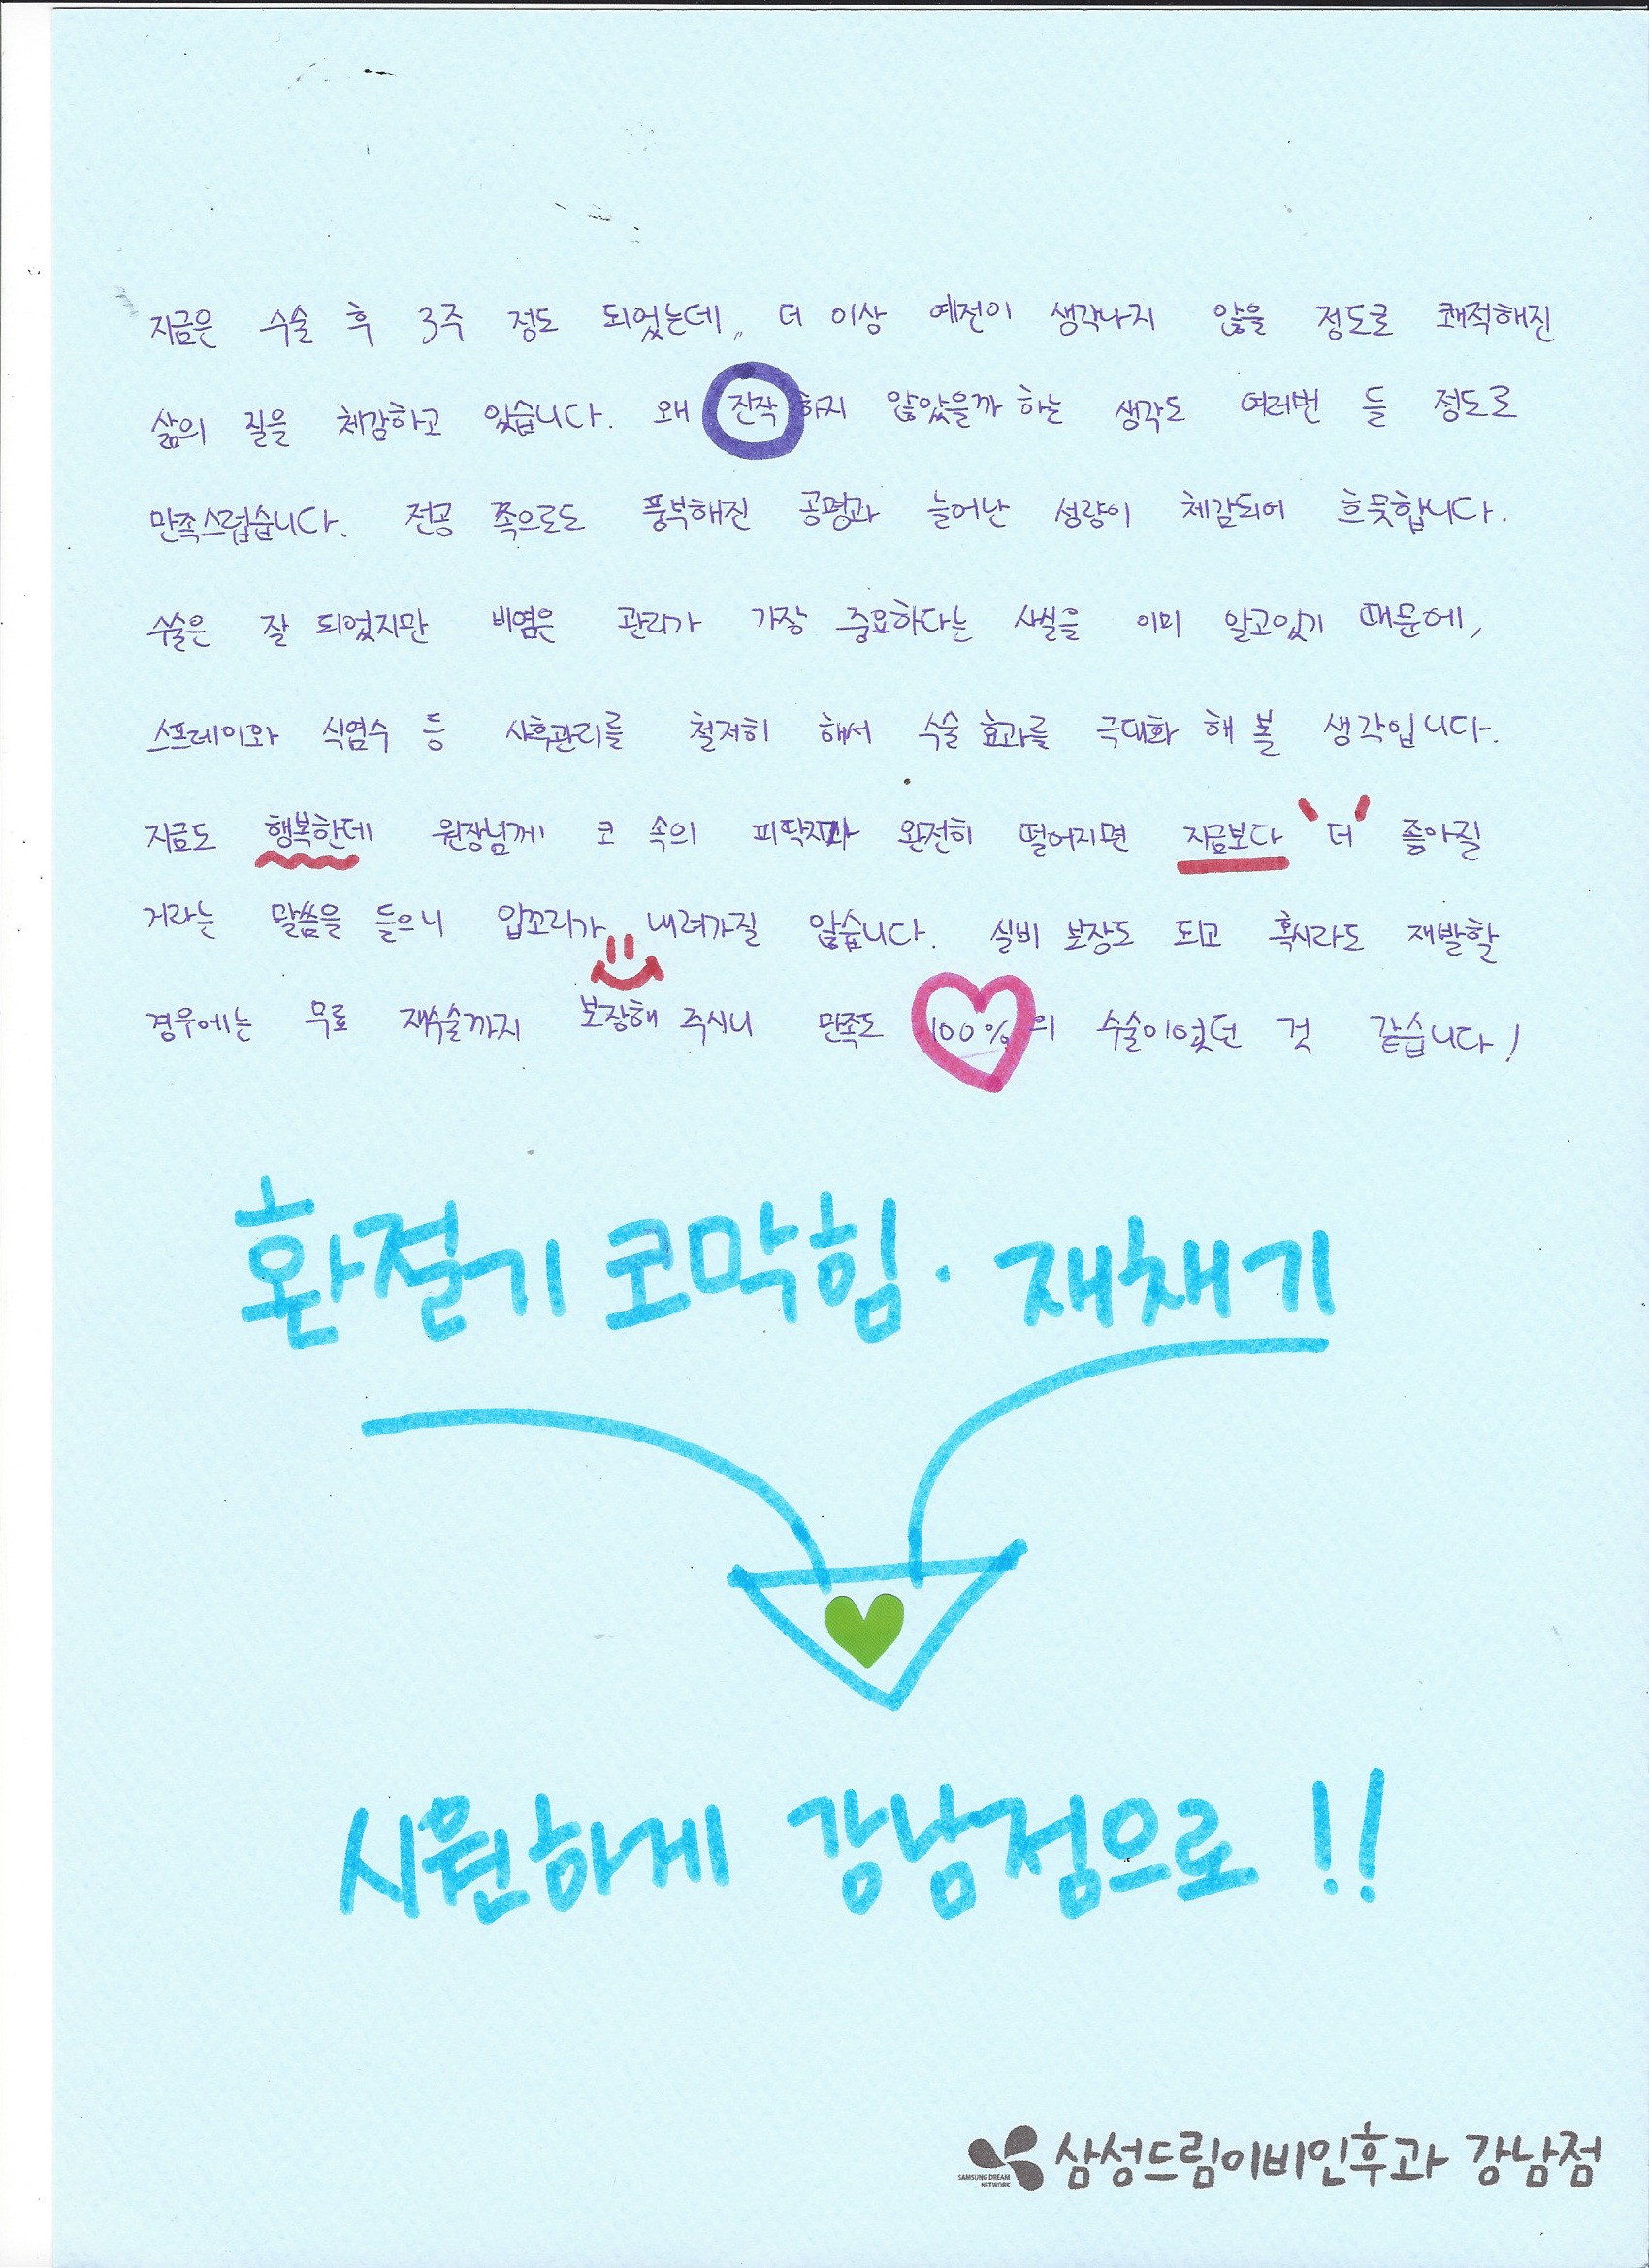 지금은 수술 후 3주 정도 되었는데, 더 이상 예전이 생각나지 않을 정도로 쾌적해진
삶의 질을 체감하고 있습니다. 왜 진작 하지 않았을까 하는 생각도 여러번 들 정도로
만족스럽습니다. 전공 쪽으로도 풍부해진 공명과 늘어난 성량이 체감되어 흐뭇합니다.
수술은 잘 되었지만 비염은 관리가 가장 중요하다는 사실을 이미 알고있기 때문에,
스프레이와 식염수 등 사후관리를 철저히 해서 수술 효과를 극대화 해 볼 생각입니다.
지금도 행복한데 원장님께 코 속의 피딱지가 완전히 떨어지면 지금보다 더 좋아질
거라는 말씀을 들으니 입꼬리가 내려가질 않습니다. 실비 보장도 되고 혹시라도 재발할
경우에는 무료 재수술까지 보장해 주시니 만족도 100%의 수술이었던 것 같습니다!
환절기 코막힘·재채기
시원하게 강남점으로!!
삼성드림이비인후과 강남점
SAMSUNG DREAM
NETWORK